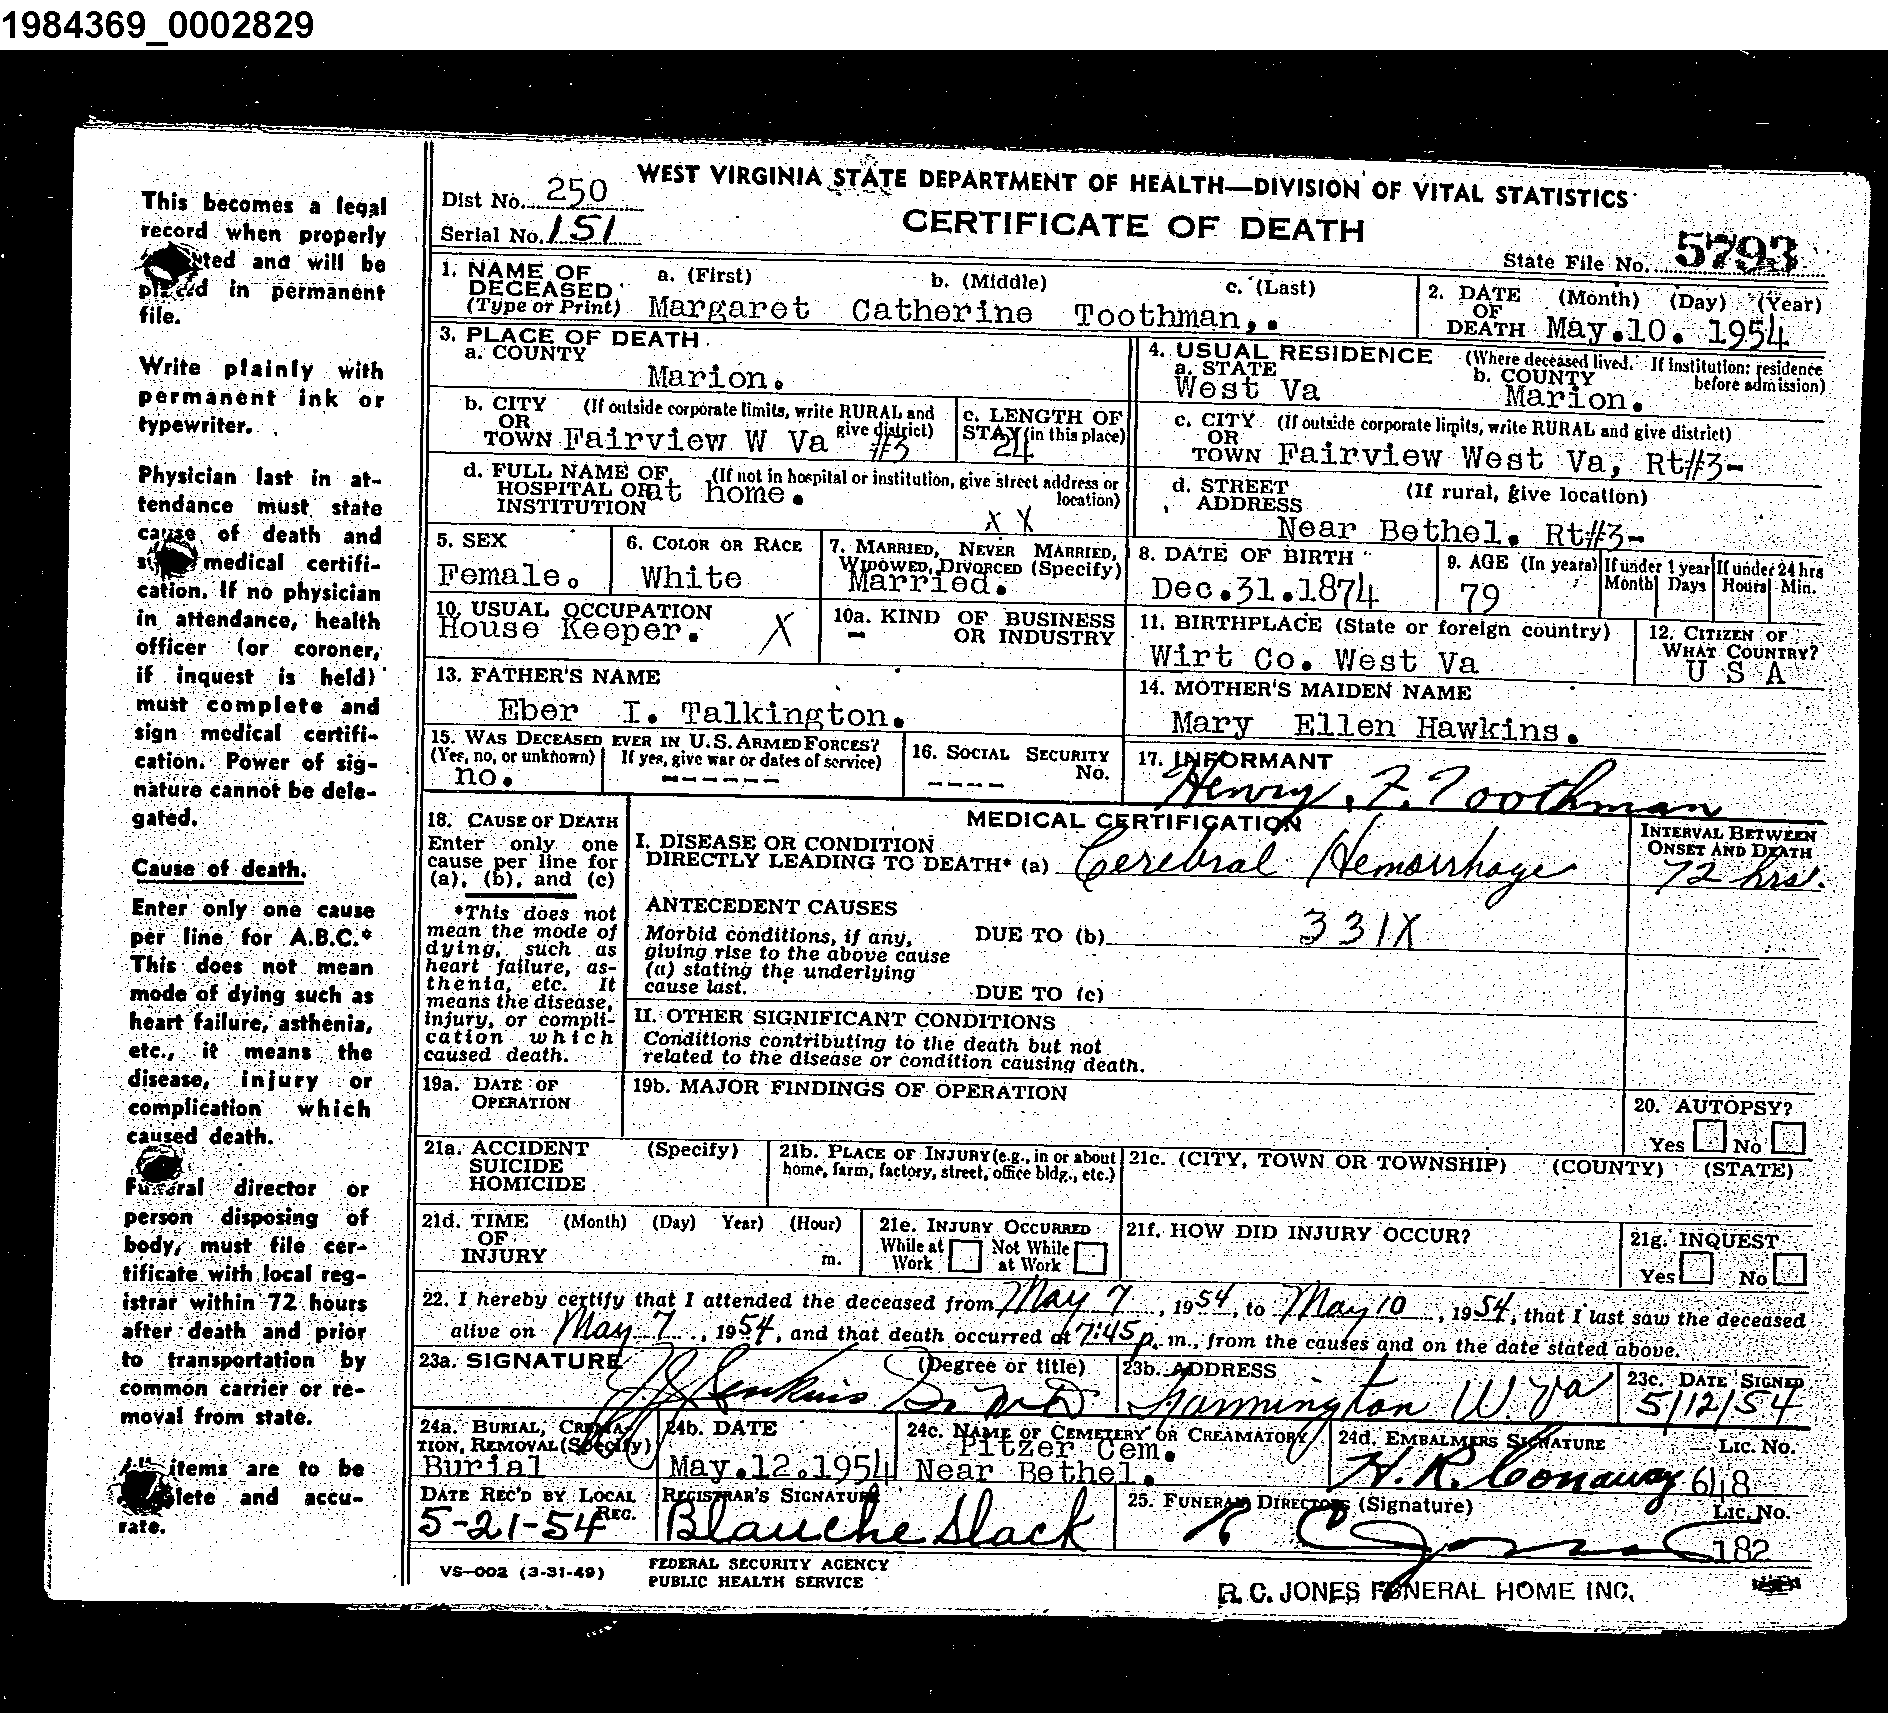 1984369_0002829
This becomes a legal
record when properly
and will be
in permanent
file.
Write plainly with
permanent ink or
typewriter.
Physician last in at-
tendance must state
cause of death and
medical certifi-
cation. If no physician
in attendance, health
officer (or coroner,
if inquest is held)
must complete and
sign medical certifi-
cation. Power of sig-
nature cannot be dele-
gated.
Cause of death.
Enter only one cause
per line for A.B.C.*
This does not mean
mode of dying such as
heart failure, asthenia,
etc., it means the
disease, injury or
complication which
caused death.
Funeral director or
person disposing of
body, must file cer-
tificate with local reg-
istrar within 72 hours
after death and prior
to transportation by
common carrier or re-
moval from state.
items are to be
and accu-
rate.
WEST VIRGINIA STATE DEPARTMENT OF HEALTH—DIVISION OF VITAL STATISTICS
Dist No. 250
CERTIFICATE OF DEATH
Serial No. 151
State File No. 5793
1. NAME OF DECEASED (Type or Print) a. (First) b. (Middle) c. (Last)
Margaret Catherine Toothman,.
2. DATE OF DEATH (Month) (Day) (Year)
May.10. 1954
3. PLACE OF DEATH
a. COUNTY
Marion.
4. USUAL RESIDENCE (Where deceased lived. If institution: residence before admission)
a. STATE West Va
b. COUNTY Marion.
b. CITY OR TOWN (If outside corporate limits, write RURAL and give district)
Fairview W Va #3
c. LENGTH OF STAY (in this place)
24
c. CITY OR TOWN (If outside corporate limits, write RURAL and give district)
Fairview West Va, Rt#3-
d. FULL NAME OF HOSPITAL OR INSTITUTION (If not in hospital or institution, give street address or location)
at home.
X X
d. STREET ADDRESS (If rural, give location)
Near Bethel. Rt#3-
5. SEX
Female.
6. COLOR OR RACE
White
7. MARRIED, NEVER MARRIED, WIDOWED, DIVORCED (Specify)
Married.
8. DATE OF BIRTH
Dec.31.1874
9. AGE (In years)
79
If under 1 year Months Days
If under 24 hrs Hours Min.
10. USUAL OCCUPATION
House Keeper. X
10a. KIND OF BUSINESS OR INDUSTRY
-
11. BIRTHPLACE (State or foreign country)
Wirt Co. West Va
12. CITIZEN OF WHAT COUNTRY?
U S A
13. FATHER'S NAME
Eber I. Talkington.
14. MOTHER'S MAIDEN NAME
Mary Ellen Hawkins.
15. WAS DECEASED EVER IN U.S. ARMED FORCES?
(Yes, no, or unknown) If yes, give war or dates of service)
no. ------
16. SOCIAL SECURITY No.
----
17. INFORMANT
Henry. F. Toothman
18. CAUSE OF DEATH
Enter only one
cause per line for
(a), (b), and (c)
*This does not
mean the mode of
dying, such as
heart failure, as-
thenia, etc. It
means the disease,
injury, or compli-
cation which
caused death.
MEDICAL CERTIFICATION
I. DISEASE OR CONDITION
DIRECTLY LEADING TO DEATH* (a) Cerebral Hemorrhage
INTERVAL BETWEEN ONSET AND DEATH
72 hrs.
ANTECEDENT CAUSES
Morbid conditions, if any,
giving rise to the above cause
(a) stating the underlying
cause last.
DUE TO (b) 331X
DUE TO (c)
II. OTHER SIGNIFICANT CONDITIONS
Conditions contributing to the death but not
related to the disease or condition causing death.
19a. DATE OF OPERATION
19b. MAJOR FINDINGS OF OPERATION
20. AUTOPSY?
Yes No
21a. ACCIDENT SUICIDE HOMICIDE (Specify)
21b. PLACE OF INJURY (e.g., in or about home, farm, factory, street, office bldg., etc.)
21c. (CITY, TOWN OR TOWNSHIP) (COUNTY) (STATE)
21d. TIME OF INJURY (Month) (Day) Year) (Hour) m.
21e. INJURY OCCURRED
While at Work Not While at Work
21f. HOW DID INJURY OCCUR?
21g. INQUEST
Yes No
22. I hereby certify that I attended the deceased from May 7, 1954, to May 10, 1954, that I last saw the deceased
alive on May 7, 1954, and that death occurred at 7:45 p. m., from the causes and on the date stated above.
23a. SIGNATURE (Degree or title)
Jenkins Sr. M D
23b. ADDRESS
Farmington W. Va
23c. DATE SIGNED
5/12/54
24a. BURIAL, CREMATION, REMOVAL (Specify)
Burial
24b. DATE
May.12.1954
24c. NAME OF CEMETERY OR CREAMATORY
Pitzer Cem.
Near Bethel.
24d. EMBALMERS SIGNATURE Lic. No.
H. R. Conaway 648
DATE REC'D BY LOCAL REG.
5-21-54
REGISTRAR'S SIGNATURE
Blanche Slack
25. FUNERAL DIRECTORS (Signature) Lic. No.
R C Jones 182
VS-002 (3-31-49)
FEDERAL SECURITY AGENCY
PUBLIC HEALTH SERVICE
R. C. JONES FUNERAL HOME INC.